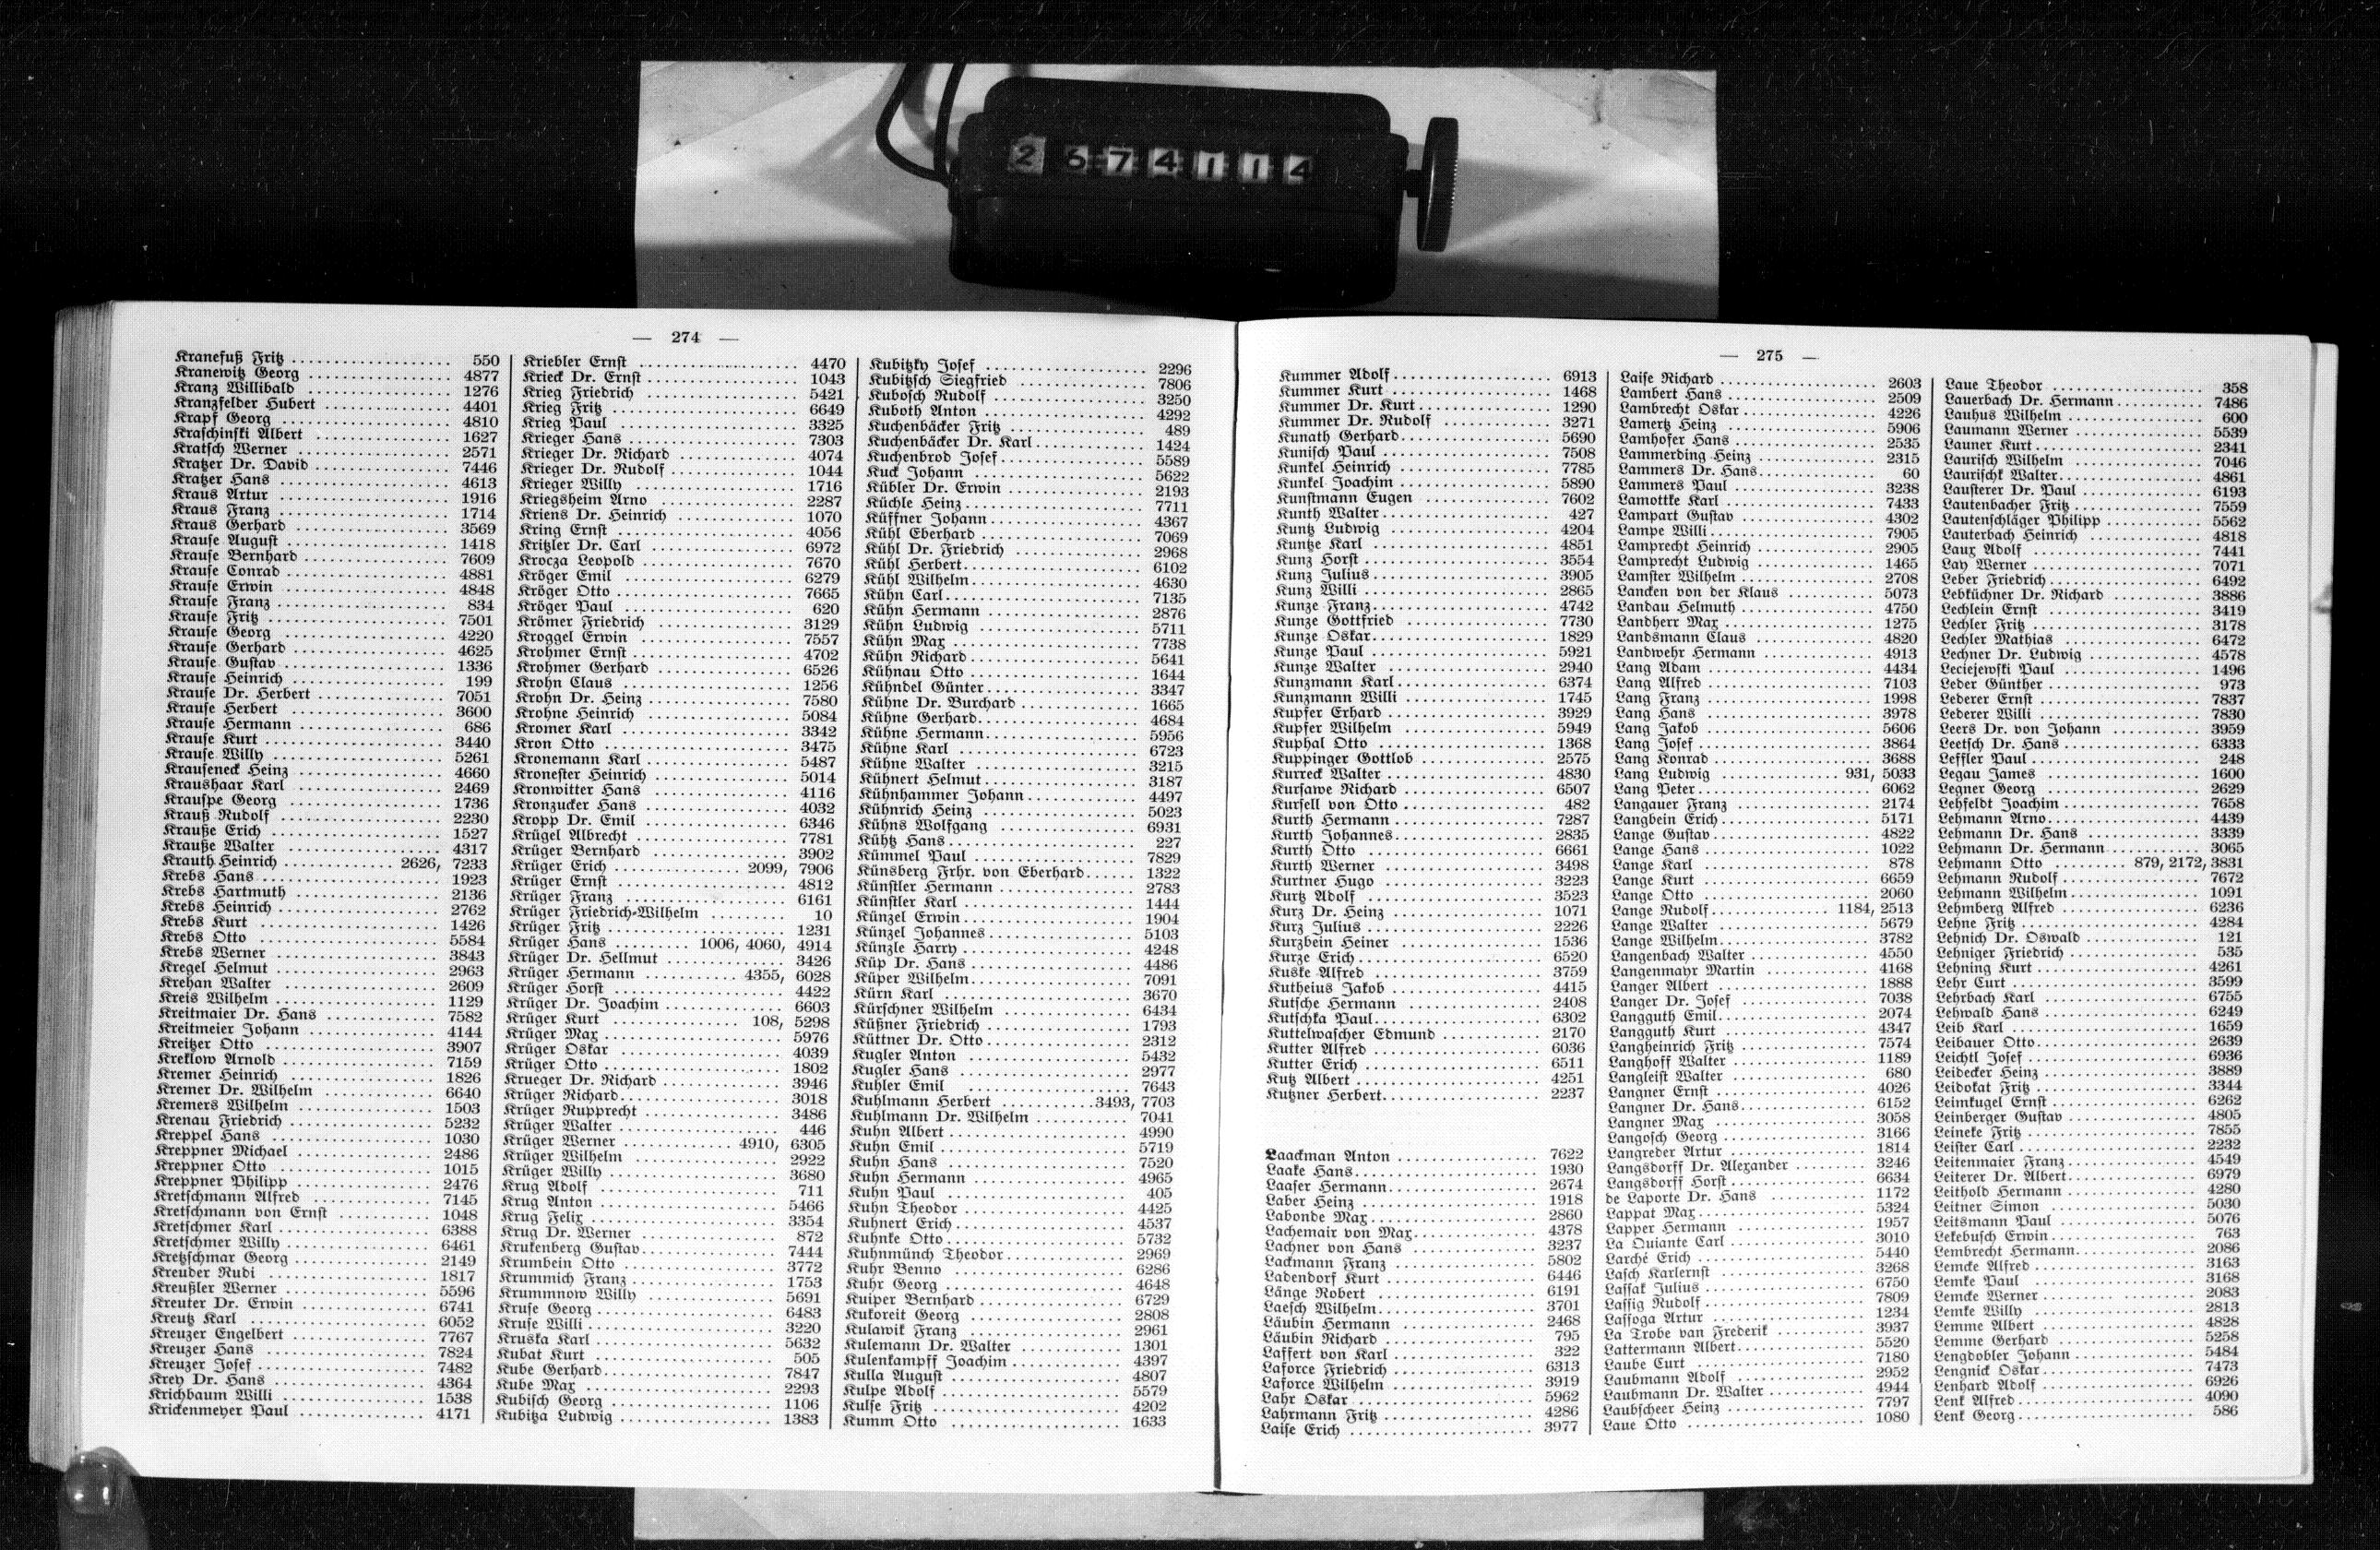 2674114
— 274 —
Kranefuß Fritz 550
Kranewitz Georg 4877
Kranz Willibald 1276
Kranzfelder Hubert 4401
Krapf Georg 4810
Kraschinski Albert 1627
Kratsch Werner 2571
Kratzer Dr. David 7446
Kratzer Hans 4613
Kraus Artur 1916
Kraus Franz 1714
Kraus Gerhard 3569
Krause August 1418
Krause Bernhard 7609
Krause Conrad 4881
Krause Erwin 4848
Krause Franz 834
Krause Fritz 7501
Krause Georg 4220
Krause Gerhard 4625
Krause Gustav 1336
Krause Heinrich 199
Krause Dr. Herbert 7051
Krause Herbert 3600
Krause Hermann 686
Krause Kurt 3440
Krause Willy 5261
Krauseneck Heinz 4660
Kraushaar Karl 2469
Krauspe Georg 1736
Krauß Rudolf 2230
Krauße Erich 1527
Krauße Walter 4317
Krauth Heinrich 2626, 7233
Krebs Hans 1923
Krebs Hartmuth 2136
Krebs Heinrich 2762
Krebs Kurt 1426
Krebs Otto 5584
Krebs Werner 3843
Kregel Helmut 2963
Krehan Walter 2609
Kreis Wilhelm 1129
Kreitmaier Dr. Hans 7582
Kreitmeier Johann 4144
Kreitzer Otto 3907
Kreklow Arnold 7159
Kremer Heinrich 1826
Kremer Dr. Wilhelm 6640
Kremers Wilhelm 1503
Krenau Friedrich 5232
Kreppel Hans 1030
Kreppner Michael 2486
Kreppner Otto 1015
Kreppner Philipp 2476
Kretschmann Alfred 7145
Kretschmann von Ernst 1048
Kretschmer Karl 6388
Kretschmer Willy 6461
Kretzschmar Georg 2149
Kreuder Rudi 1817
Kreußler Werner 5596
Kreuter Dr. Erwin 6741
Kreutz Karl 6052
Kreuzer Engelbert 7767
Kreuzer Hans 7824
Kreuzer Josef 7482
Krey Dr. Hans 4364
Krichbaum Willi 1538
Krickenmeyer Paul 4171
Kriebler Ernst 4470
Krieck Dr. Ernst 1043
Krieg Friedrich 5421
Krieg Fritz 6649
Krieg Paul 3325
Krieger Hans 7303
Krieger Dr. Richard 4074
Krieger Dr. Rudolf 1044
Krieger Willy 1716
Kriegsheim Arno 2287
Kriens Dr. Heinrich 1070
Kring Ernst 4056
Kritzler Dr. Carl 6972
Krocza Leopold 7670
Kröger Emil 6279
Kröger Otto 7665
Kröger Paul 620
Krömer Friedrich 3129
Kroggel Erwin 7557
Krohmer Ernst 4702
Krohmer Gerhard 6526
Krohn Claus 1256
Krohn Dr. Heinz 7580
Krohne Heinrich 5084
Kromer Karl 3342
Kron Otto 3475
Kronemann Karl 5487
Kronester Heinrich 5014
Kronwitter Hans 4116
Kronzucker Hans 4032
Kropp Dr. Emil 6346
Krügel Albrecht 7781
Krüger Bernhard 3902
Krüger Erich 2099, 7906
Krüger Ernst 4812
Krüger Franz 6161
Krüger Friedrich-Wilhelm 10
Krüger Fritz 1231
Krüger Hans 1006, 4060, 4914
Krüger Dr. Hellmut 3426
Krüger Hermann 4355, 6028
Krüger Horst 4422
Krüger Dr. Joachim 6603
Krüger Kurt 108, 5298
Krüger Max 5976
Krüger Oskar 4039
Krüger Otto 1802
Krueger Dr. Richard 3946
Krüger Richard 3018
Krüger Rupprecht 3486
Krüger Walter 446
Krüger Werner 4910, 6305
Krüger Wilhelm 2922
Krüger Willy 3680
Krug Adolf 711
Krug Anton 5466
Krug Felix 3354
Krug Dr. Werner 872
Krukenberg Gustav 7444
Krumbein Otto 3772
Krummich Franz 1753
Krummnow Willy 5691
Kruse Georg 6483
Kruse Willi 3220
Kruska Karl 5632
Kubat Kurt 505
Kube Gerhard 7847
Kube Max 2293
Kubisch Georg 1106
Kubitza Ludwig 1383
Kubitzky Josef 2296
Kubitzsch Siegfried 7806
Kubosch Rudolf 3250
Kuboth Anton 4292
Kuchenbäcker Fritz 489
Kuchenbäcker Dr. Karl 1424
Kuchenbrod Josef 5589
Kuck Johann 5622
Kübler Dr. Erwin 2193
Küchle Heinz 7711
Küffner Johann 4367
Kühl Eberhard 7069
Kühl Dr. Friedrich 2968
Kühl Herbert 6102
Kühl Wilhelm 4630
Kühn Carl 7135
Kühn Hermann 2876
Kühn Ludwig 5711
Kühn Max 7738
Kühn Richard 5641
Kühnau Otto 1644
Kühndel Günter 3347
Kühne Dr. Burchard 1665
Kühne Gerhard 4684
Kühne Hermann 5956
Kühne Karl 6723
Kühne Walter 3215
Kühnert Helmut 3187
Kühnhammer Johann 4497
Kühnrich Heinz 5023
Kühns Wolfgang 6931
Kühtz Hans 227
Kümmel Paul 7829
Künsberg Frhr. von Eberhard 1322
Künstler Hermann 2783
Künstler Karl 1444
Künzel Erwin 1904
Künzel Johannes 5103
Künzle Harry 4248
Küp Dr. Hans 4486
Küper Wilhelm 7091
Kürn Karl 3670
Kürschner Wilhelm 6434
Küßner Friedrich 1793
Küttner Dr. Otto 2312
Kugler Anton 5432
Kugler Hans 2977
Kuhler Emil 7643
Kuhlmann Herbert 3493, 7703
Kuhlmann Dr. Wilhelm 7041
Kuhn Albert 4990
Kuhn Emil 5719
Kuhn Hans 7520
Kuhn Hermann 4965
Kuhn Paul 405
Kuhn Theodor 4425
Kuhnert Erich 4537
Kuhnke Otto 5732
Kuhnmünch Theodor 2969
Kuhr Benno 6286
Kuhr Georg 4648
Kuiper Bernhard 6729
Kukoreit Georg 2808
Kulawik Franz 2961
Kulemann Dr. Walter 1301
Kulenkampff Joachim 4397
Kulla August 4807
Kulpe Adolf 5579
Kulse Fritz 4202
Kumm Otto 1633
— 275 —
Kummer Adolf 6913
Kummer Kurt 1468
Kummer Dr. Kurt 1290
Kummer Dr. Rudolf 3271
Kunath Gerhard 5690
Kunisch Paul 7508
Kunkel Heinrich 7785
Kunkel Joachim 5890
Kunstmann Eugen 7602
Kunth Walter 427
Kuntz Ludwig 4204
Kuntze Karl 4851
Kunz Horst 3554
Kunz Julius 3905
Kunz Willi 2865
Kunze Franz 4742
Kunze Gottfried 7730
Kunze Oskar 1829
Kunze Paul 5921
Kunze Walter 2940
Kunzmann Karl 6374
Kunzmann Willi 1745
Kupfer Erhard 3929
Kupfer Wilhelm 5949
Kuphal Otto 1368
Kuppinger Gottlob 2575
Kurreck Walter 4830
Kursawe Richard 6507
Kursell von Otto 482
Kurth Hermann 7287
Kurth Johannes 2835
Kurth Otto 6661
Kurth Werner 3498
Kurtner Hugo 3223
Kurtz Adolf 3523
Kurz Dr. Heinz 1071
Kurz Julius 2226
Kurzbein Heiner 1536
Kurze Erich 6520
Kuske Alfred 3759
Kutheius Jakob 4415
Kutsche Hermann 2408
Kutschka Paul 6302
Kuttelwascher Edmund 2170
Kutter Alfred 6036
Kutter Erich 6511
Kutz Albert 4251
Kutzner Herbert 2237
Laackman Anton 7622
Laake Hans 1930
Laaser Hermann 2674
Laber Heinz 1918
Labonde Max 2860
Lachemair von Max 4378
Lachner von Hans 3237
Lackmann Franz 5802
Ladendorf Kurt 6446
Länge Robert 6191
Laesch Wilhelm 3701
Läubin Hermann 2468
Läubin Richard 795
Laffert von Karl 322
Laforce Friedrich 6313
Laforce Wilhelm 3919
Lahr Oskar 5962
Lahrmann Fritz 4286
Laise Erich 3977
Laise Richard 2603
Lambert Hans 2509
Lambrecht Oskar 4226
Lamertz Heinz 5906
Lamhofer Hans 2535
Lammerding Heinz 2315
Lammers Dr. Hans 60
Lammers Paul 3238
Lamottke Karl 7433
Lampart Gustav 4302
Lampe Willi 7905
Lamprecht Heinrich 2905
Lamprecht Ludwig 1465
Lamster Wilhelm 2708
Lancken von der Klaus 5073
Landau Helmuth 4750
Landherr Max 1275
Landsmann Claus 4820
Landwehr Hermann 4913
Lang Adam 4434
Lang Alfred 7103
Lang Franz 1998
Lang Hans 3978
Lang Jakob 5606
Lang Josef 3864
Lang Konrad 3688
Lang Ludwig 931, 5033
Lang Peter 6062
Langauer Franz 2174
Langbein Erich 5171
Lange Gustav 4822
Lange Hans 1022
Lange Karl 878
Lange Kurt 6659
Lange Otto 2060
Lange Rudolf 1184, 2513
Lange Walter 5679
Lange Wilhelm 3782
Langenbach Walter 4550
Langenmayr Martin 4168
Langer Albert 1888
Langer Dr. Josef 7038
Langguth Emil 2074
Langguth Kurt 4347
Langheinrich Fritz 7574
Langhoff Walter 1189
Langleist Walter 680
Langner Ernst 4026
Langner Dr. Hans 6152
Langner Max 3058
Langosch Georg 3166
Langreder Artur 1814
Langsdorff Dr. Alexander 3246
Langsdorff Horst 6634
de Laporte Dr. Hans 1172
Lappat Max 5324
Lapper Hermann 1957
La Quiante Carl 3010
Larché Erich 5440
Lasch Karlernst 3268
Lassak Julius 6750
Lassig Rudolf 7809
Lassoga Artur 1234
La Trobe van Frederik 3937
Lattermann Albert 5520
Laube Curt 7180
Laubmann Adolf 2952
Laubmann Dr. Walter 4944
Laubscheer Heinz 7797
Laue Otto 1080
Laue Theodor 358
Lauerbach Dr. Hermann 7486
Lauhus Wilhelm 600
Laumann Werner 5539
Launer Kurt 2341
Laurisch Wilhelm 7046
Laurischk Walter 4861
Lausterer Dr. Paul 6193
Lautenbacher Fritz 7559
Lautenschläger Philipp 5562
Lauterbach Heinrich 4818
Laux Adolf 7441
Lay Werner 7071
Leber Friedrich 6492
Lebküchner Dr. Richard 3886
Lechlein Ernst 3419
Lechler Fritz 3178
Lechler Mathias 6472
Lechner Dr. Ludwig 4578
Leciejewski Paul 1496
Leder Günther 973
Lederer Ernst 7837
Lederer Willi 7830
Leers Dr. von Johann 3959
Leetsch Dr. Hans 6333
Leffler Paul 248
Legau James 1600
Legner Georg 2629
Lehfeldt Joachim 7658
Lehmann Arno 4439
Lehmann Dr. Hans 3339
Lehmann Dr. Hermann 3065
Lehmann Otto 879, 2172, 3831
Lehmann Rudolf 7672
Lehmann Wilhelm 1091
Lehmberg Alfred 6236
Lehne Fritz 4284
Lehnich Dr. Oswald 121
Lehniger Friedrich 535
Lehning Kurt 4261
Lehr Curt 3599
Lehrbach Karl 6755
Lehwald Hans 6249
Leib Karl 1659
Leibauer Otto 2639
Leichtl Josef 6936
Leidecker Heinz 3889
Leidokat Fritz 3344
Leimkugel Ernst 6262
Leinberger Gustav 4805
Leineke Fritz 7855
Leister Carl 2232
Leitenmaier Franz 4549
Leiterer Dr. Albert 6979
Leithold Hermann 4280
Leitner Simon 5030
Leitsmann Paul 5076
Lekebusch Erwin 763
Lembrecht Hermann 2086
Lemcke Alfred 3163
Lemke Paul 3168
Lemcke Werner 2083
Lemke Willy 2813
Lemme Albert 4828
Lemme Gerhard 5258
Lengdobler Johann 5484
Lengnick Oskar 7473
Lenhard Adolf 6926
Lenk Alfred 4090
Lenk Georg 586